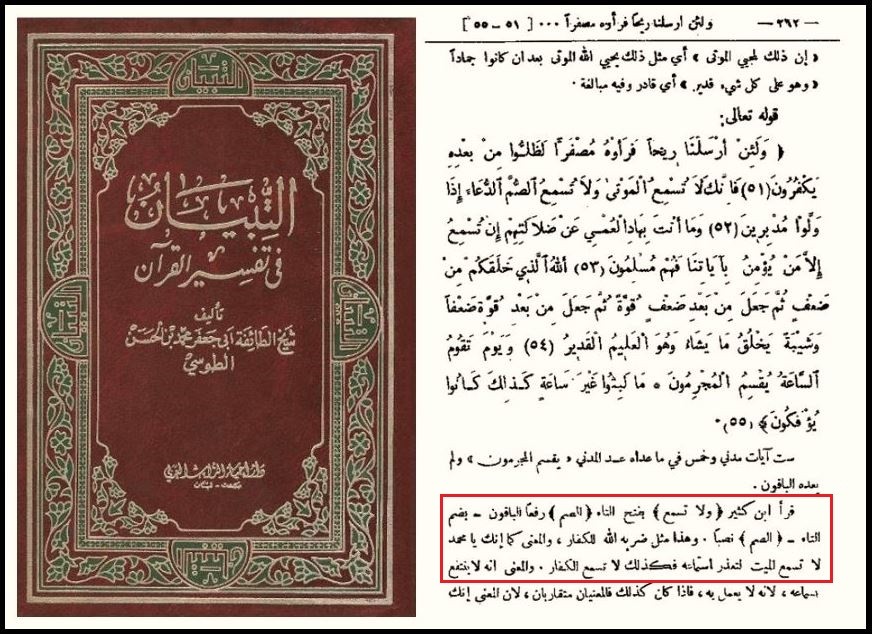 التبيان
التِّبيَانُ
في تفسير القرآن
تأليف
شيخ الطائفة أبي جعفر محمد بن الحسن
الطوسي
دار احياء التراث العربي
بيروت - لبنان
— ٢٩٢ — ولئن ارسلنا ريحاً فرأوه مصفراً ٠٠٠ [ ٥١ – ٥٥ ]
« إن ذلك لمحيي الموتى » أي مثل ذلك يحيي الله الموتى بعد ان كانوا جماداً
« وهو على كل شيء قدير » أي قادر وفيه مبالغة .
قوله تعالى:
﴿ وَلَئِنْ أَرْسَلْنَا رِيحاً فَرَأَوْهُ مُصْفَرًّا لَظَلُّوا مِنْ بَعْدِهِ
يَكْفُرُونَ (٥١) فَإِنَّكَ لَا تُسْمِعُ الْمَوْتَىٰ وَلَا تُسْمِعُ الصُّمَّ الدُّعَاءَ إِذَا
وَلَّوْا مُدْبِرِينَ (٥٢) وَمَا أَنْتَ بِهَادِ الْعُمْيِ عَنْ ضَلَالَتِهِمْ إِنْ تُسْمِعُ
إِلَّا مَنْ يُؤْمِنُ بِآيَاتِنَا فَهُمْ مُسْلِمُونَ (٥٣) اَللهُ الَّذِي خَلَقَكُمْ مِنْ
ضَعْفٍ ثُمَّ جَعَلَ مِنْ بَعْدِ ضَعْفٍ قُوَّةً ثُمَّ جَعَلَ مِنْ بَعْدِ قُوَّةٍ ضَعْفاً
وَشَيْبَةً يَخْلُقُ مَا يَشَاءُ وَهُوَ الْعَلِيمُ الْقَدِيرُ (٥٤) وَيَوْمَ تَقُومُ
السَّاعَةُ يُقْسِمُ الْمُجْرِمُونَ ٥ مَا لَبِثُوا غَيْرَ سَاعَةٍ كَذَلِكَ كَانُوا
يُؤْفَكُونَ ﴾ (٥٥) .
ست آيات مدني وخمس في ما عداه عد المدني « يقسم المجرمون » ولم
يعده الباقون .
قرأ ابن كثير ﴿ ولا تسمع ﴾ بفتح التاء ﴿ الصم ﴾ رفعاً الباقون – بضم
التاء – ﴿ الصم ﴾ نصباً . وهذا مثل ضربه الله للكفار ، والمعنى كما إنك يا محمد
لا تسمع الميت لتعذر استماعه فكذلك لا تسمع الكفار . والمعنى انه لا ينتفع
بسماعه ، لانه لا يعمل به ، فاذا كان كذلك فالمعنيان متقاربان ، لان المعنى إنك